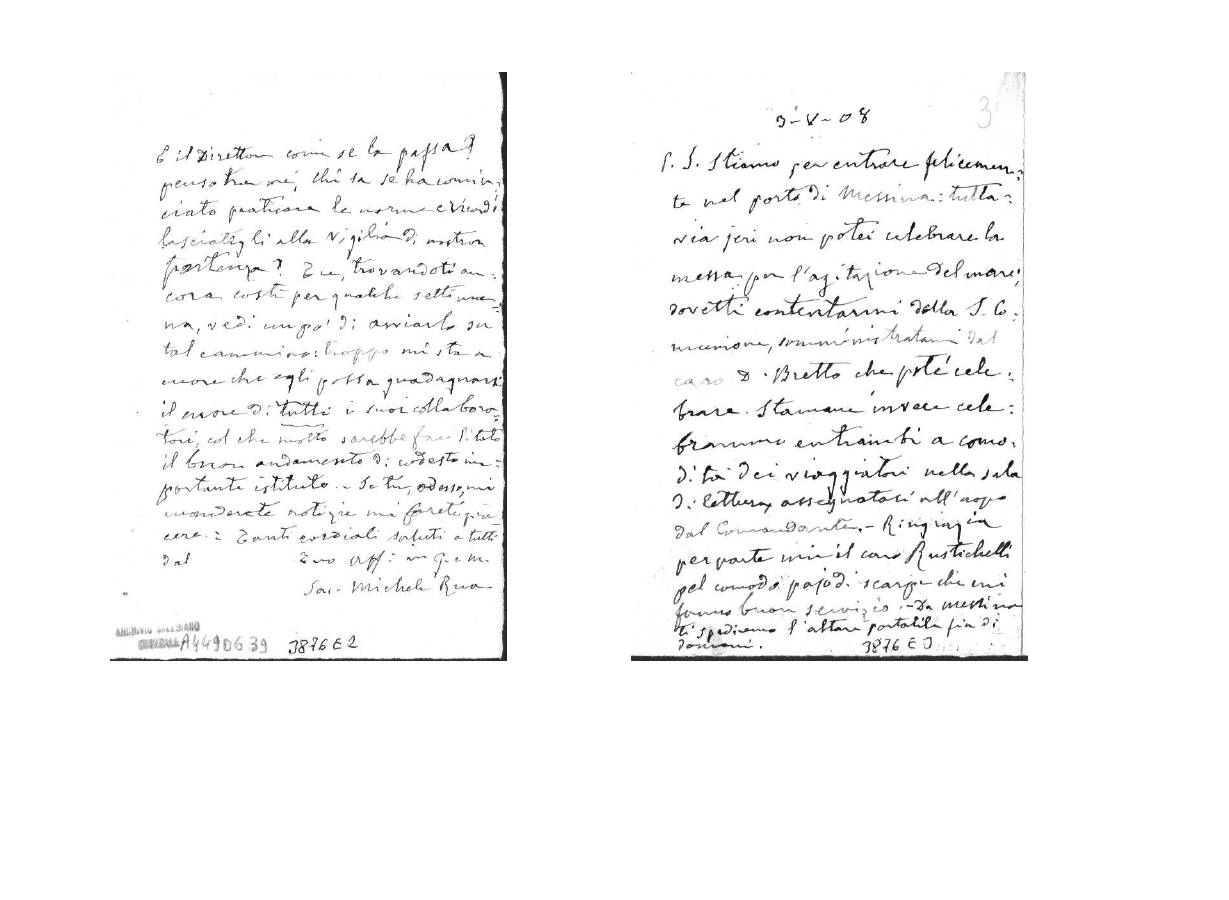 E il Direttore come se la passa?
penso tra me, chi sa se ha comin=
ciato praticare le norme e ricordi
lasciatigli alla vigilia di nostra
partenza? Tu, trovandoti an=
cora costì per qualche settima=
na, vedi un po' di avviarlo su
tal cammino: troppo mi sta a
cuore che egli possa guadagnarsi
il cuore di tutti i suoi collabora=
tori, col che molto sarebbe facilitato
il buon andamento di codesto im=
portante istituto. - Se tu, adesso, mi
manderete notizie mi farete pia=
cere. = Tanti cordiali saluti a tutti
dal Tuo aff. in G. e M.
Sac. Michele Rua
ARCHIVIO SALESIANO
CENTRALE A4490639 3876 E 2
3
3-V-08
P. S. Stiamo per entrare felicemen=
te nel porto di Messina: tutta=
via jeri non potei celebrare la
messa per l'agitazione del mare;
dovetti contentarmi della S. Co=
munione, somministratami dal
caro D. Bretto che poté cele=
brare. Stamane invece cele=
brammo entrambi a como=
dità dei viaggiatori nella sala
di lettura assegnataci all'uopo
dal Comandante. - Ringrazia
per parte mia il caro Rustichelli
pel comodo pajo di scarpe che mi
fanno buon servizio. - Da Messina
ti spediremo l'altare portatile fin di
domani. 3876 E 3